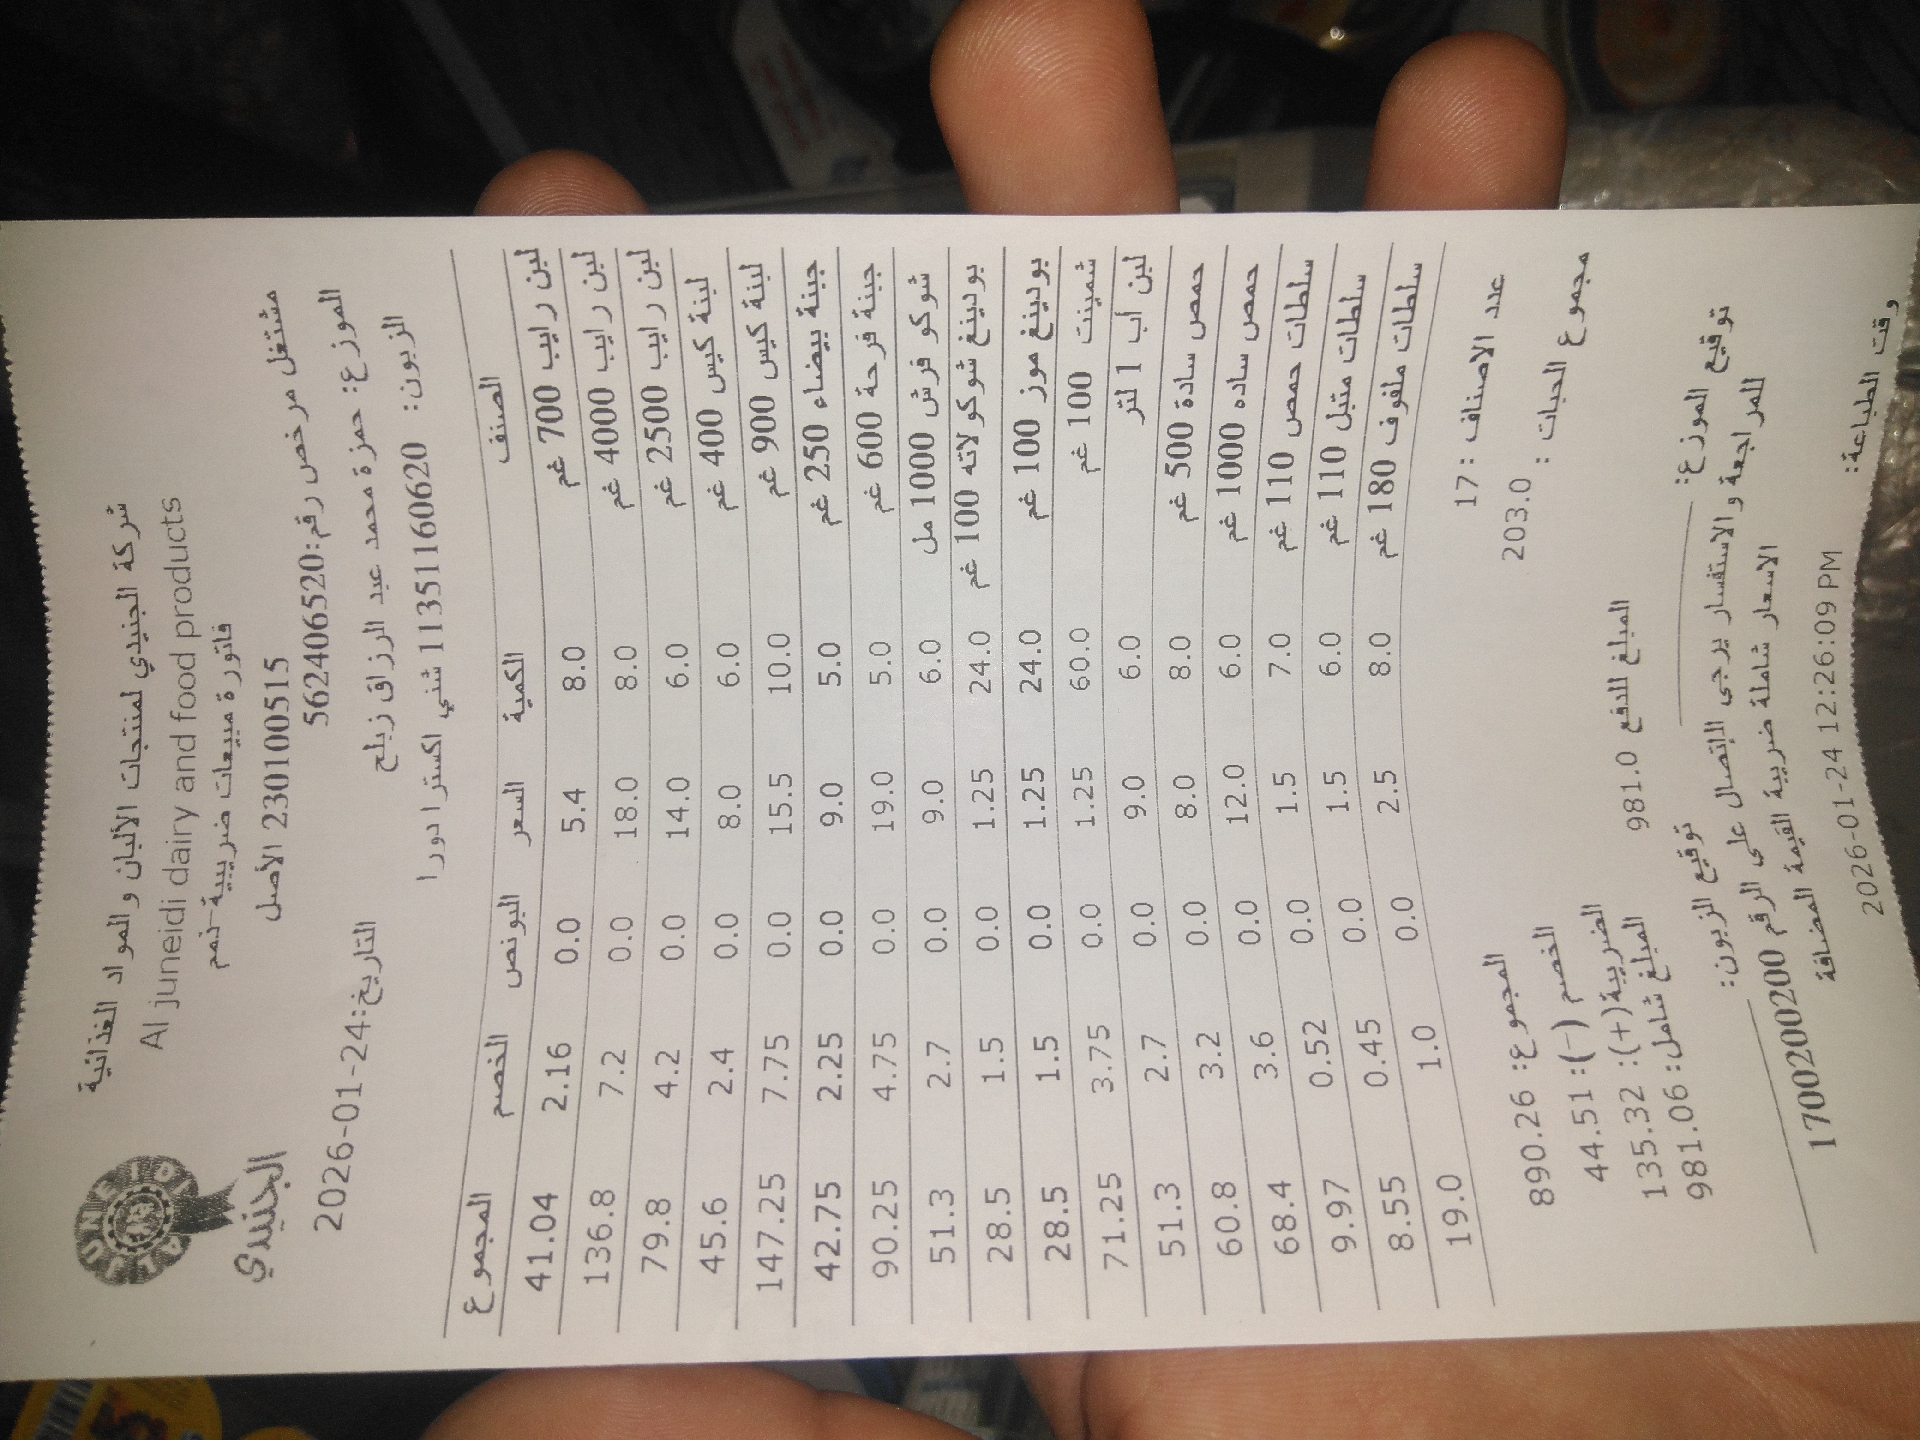 شركة الجنيدي لمنتجات الألبان والمواد الغذائية
Al juneidi dairy and food products
فاتورة مبيعات ضريبية-ذمم
AL JUNEIDI
الجنيدي
230100515 الأصل
مشتغل مرخص رقم:562406520
التاريخ:24-01-2026
الموزع: حمزة محمد عبد الرزاق زيلح
الزبون: 11351160620 شني اكسترا دورا
الصنف الكمية السعر البونص الخصم المجموع
لبن رايب 700 غم 8.0 5.4 0.0 2.16 41.04
لبن رايب 4000 غم 8.0 18.0 0.0 7.2 136.8
لبن رايب 2500 غم 6.0 14.0 0.0 4.2 79.8
لبنة كيس 400 غم 6.0 8.0 0.0 2.4 45.6
لبنة كيس 900 غم 10.0 15.5 0.0 7.75 147.25
جبنة بيضاء 250 غم 5.0 9.0 0.0 2.25 42.75
جبنة فرحة 600 غم 5.0 19.0 0.0 4.75 90.25
شوكو فرش 1000 مل 6.0 9.0 0.0 2.7 51.3
بودينغ شوكولاته 100 غم 24.0 1.25 0.0 1.5 28.5
بودينغ موز 100 غم 24.0 1.25 0.0 1.5 28.5
شمينت 100 غم 60.0 1.25 0.0 3.75 71.25
لبن أب 1 لتر 6.0 9.0 0.0 2.7 51.3
حمص سادة 500 غم 8.0 8.0 0.0 3.2 60.8
حمص ساده 1000 غم 6.0 12.0 0.0 3.6 68.4
سلطات حمص 110 غم 7.0 1.5 0.0 0.52 9.97
سلطات متبل 110 غم 6.0 1.5 0.0 0.45 8.55
سلطات ملفوف 180 غم 8.0 2.5 0.0 1.0 19.0
عدد الاصناف : 17
المجموع: 890.26
مجموع الحبات : 203.0
الخصم (-): 44.51
الضريبة(+): 135.32
المبلغ للدفع 981.0
المبلغ شامل: 981.06
توقيع الموزع:
توقيع الزبون:
للمراجعة والاستفسار يرجى الإتصال على الرقم 1700200200
الاسعار شاملة ضريبة القيمة المضافة
وقت الطباعة: 2026-01-24 12:26:09 PM